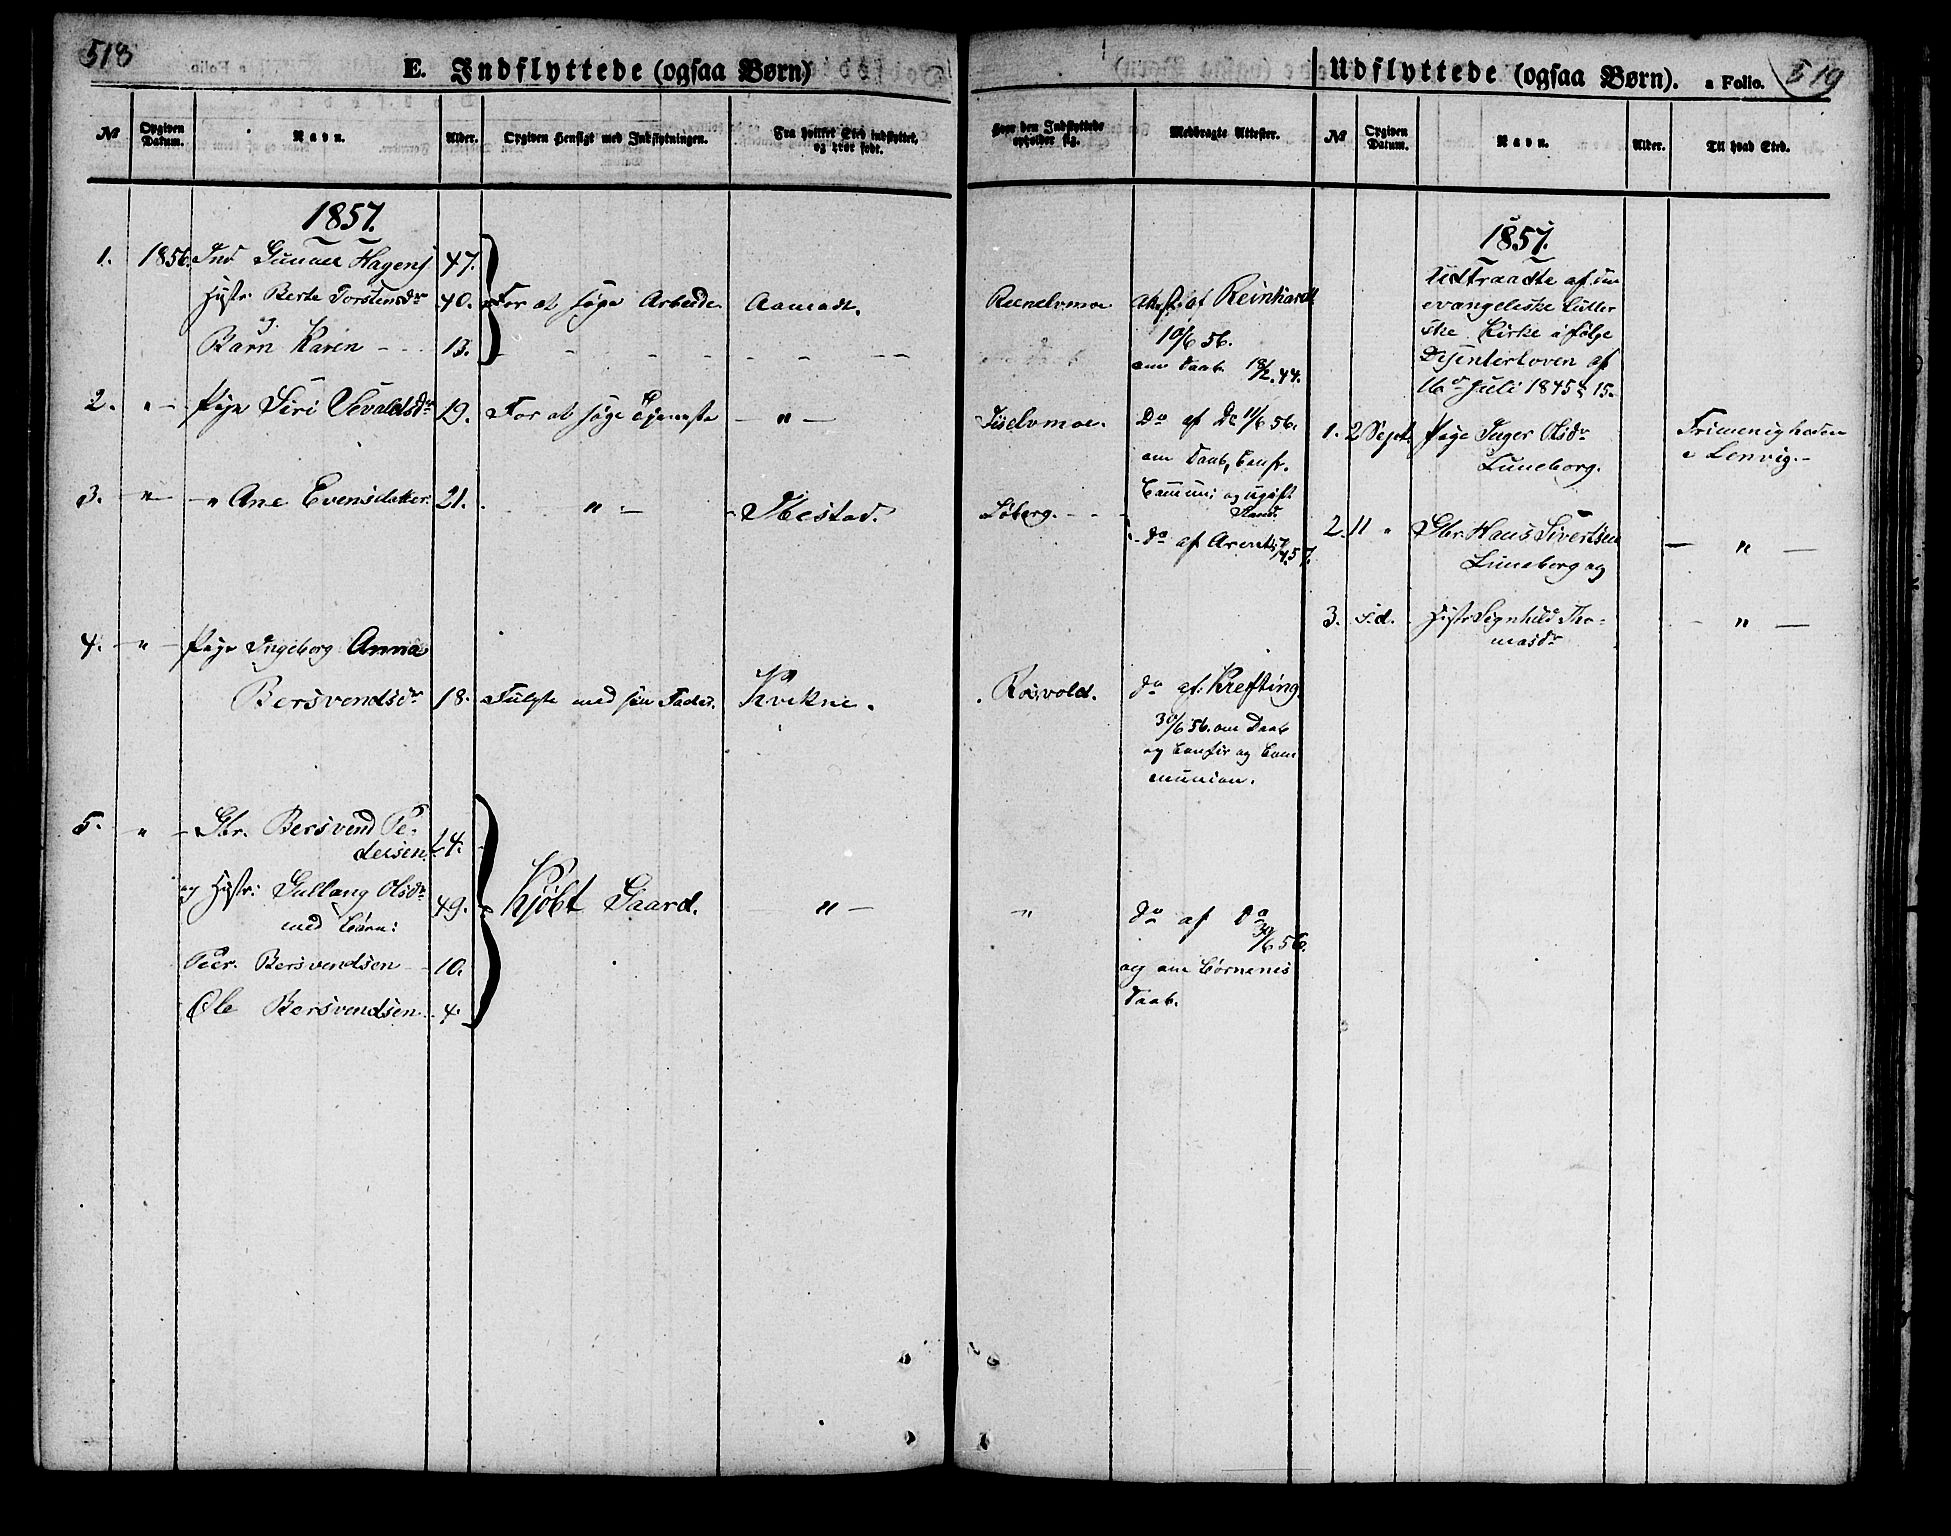 518
E. Indflyttede (ogsaa Børn)
№ Opgiven Datum. Navn. Alder. Opgiven Hensigt med Indflytningen. Fra hvilket Sted indflyttet, og hvor født.
1857.
1. 1856. Ind Gunner Hagens 47.
Hustr. Berte Torstensdr 40. For at søge Arbeide Aamadt.
og
Barn Karen - - 13.
2. " — Pige Siri Sevaldsdr 19. For at søge Tjeneste — " —
3. — " — " Ane Evensdatter 21. " — Ibestad.
4. — " — Pige Ingeborg Anna
Bersvendsdr 18. Fulgte med sin Fader. Kvikne.
5. — " — Gbr. Bersvend Pe-
dersen 54.
og Hustr: Gullaug Olsdr 49. Kjøbt Gaard. — " —
med Børn:
Peer Bersvendsen 10.
Ole Bersvendsen 4.
Hvor den Indflyttede opholder sig. Medbragte Attester.
Attest af Reinhardt
10/6 56.
om Daab 18/2 44.
Do af Do 11/6 56.
om Daab, Confr.
Commun: og ugift
Stand.
Søberg. - - -
do af Arentz 57.
Roivold. do af Krefting
30/6 56. om Daab
og Confir og Com
munion.
" do af do
30/6 56.
og om Børnenes
Daab.
Udflyttede (ogsaa Børn). a Folio. 519
№ Opgiven Datum. Navn. Alder. Til hvad Sted.
1857.
Udtraadte af den
evangeliske luther
ske Kirke ifølge
Dissenterloven af
16de Juli 1845 § 15.
1. 2 Sept. Pige Inger Olsdr Frimenigheden
Luneborg. i Lenvig. -
2. 11 " Gbr. Hans Sivertsen — " —
Luneborg og
3. s.d. Hustr Signhild Tho-
masdr — " —